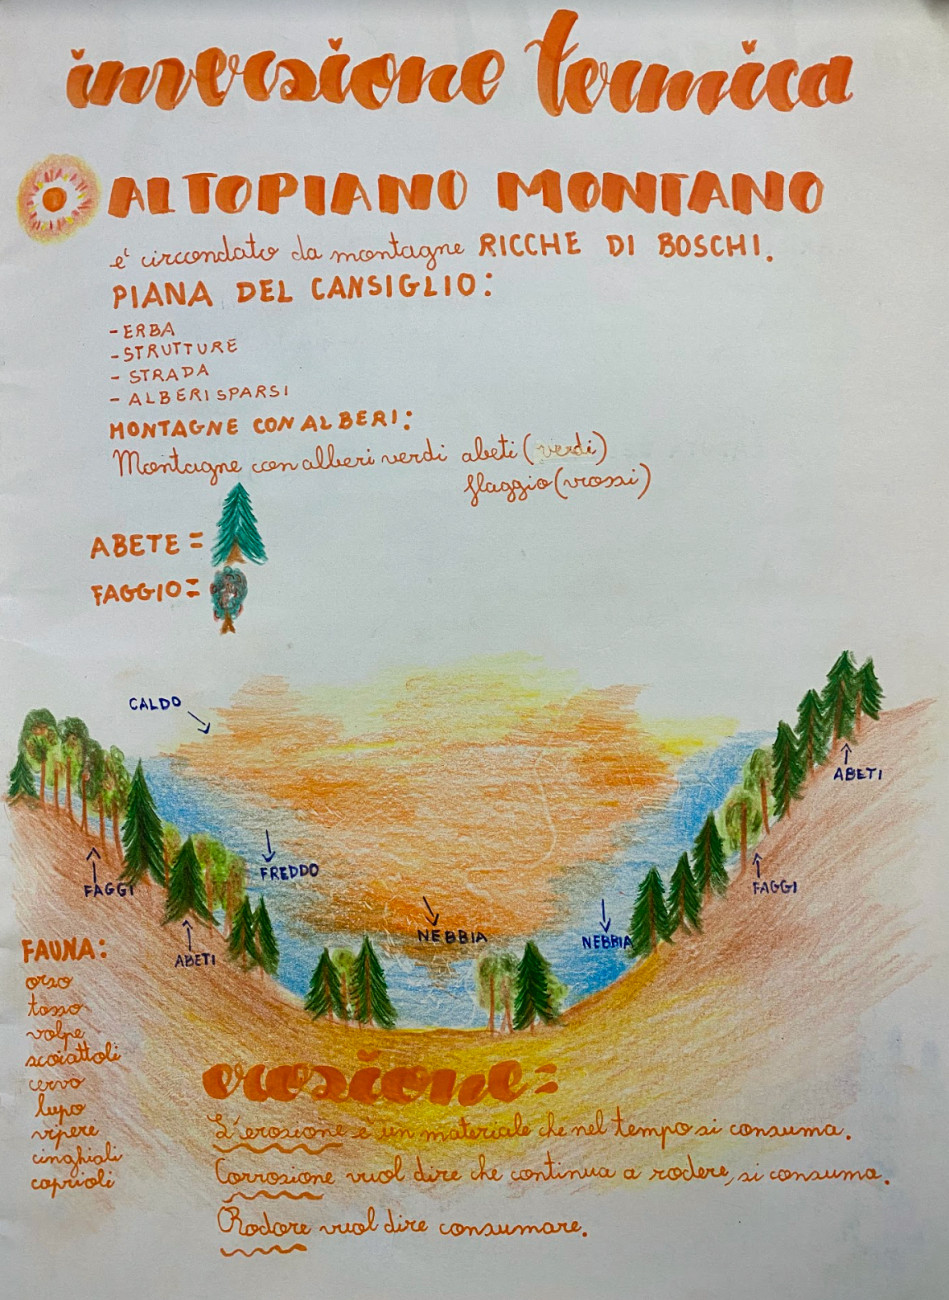 inversione termica
ALTOPIANO MONTANO
è circondato da montagne RICCHE DI BOSCHI.
PIANA DEL CANSIGLIO:
-ERBA
-STRUTTURE
- STRADA
- ALBERI SPARSI
MONTAGNE CON ALBERI:
Montagne con alberi verdi abeti (verdi)
flaggio (rossi)
ABETE =
FAGGIO =
CALDO
ABETI
FREDDO
FAGGI
FAGGI
NEBBIA
NEBBIA
ABETI
FAUNA:
orso
tasso
volpe
scoiattoli
cervo
lupo
vipere
cinghiali
caprioli
erosione=
L'erosione è un materiale che nel tempo si consuma.
Corrosione vuol dire che continua a rodere, si consuma.
Rodere vuol dire consumare.